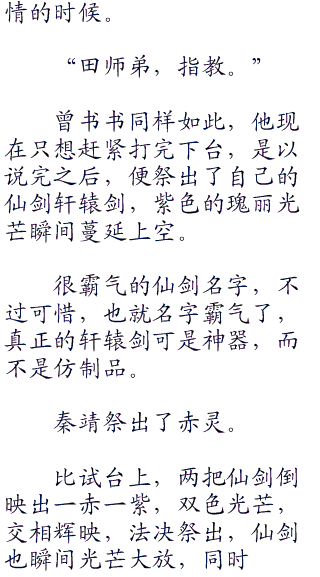 情的时候。
“田师弟，指教。”
曾书书同样如此，他现
在只想赶紧打完下台，是以
说完之后，便祭出了自己的
仙剑轩辕剑，紫色的瑰丽光
芒瞬间蔓延上空。
很霸气的仙剑名字，不
过可惜，也就名字霸气了，
真正的轩辕剑可是神器，而
不是仿制品。
秦靖祭出了赤灵。
比试台上，两把仙剑倒
映出一赤一紫，双色光芒，
交相辉映，法决祭出，仙剑
也瞬间光芒大放，同时